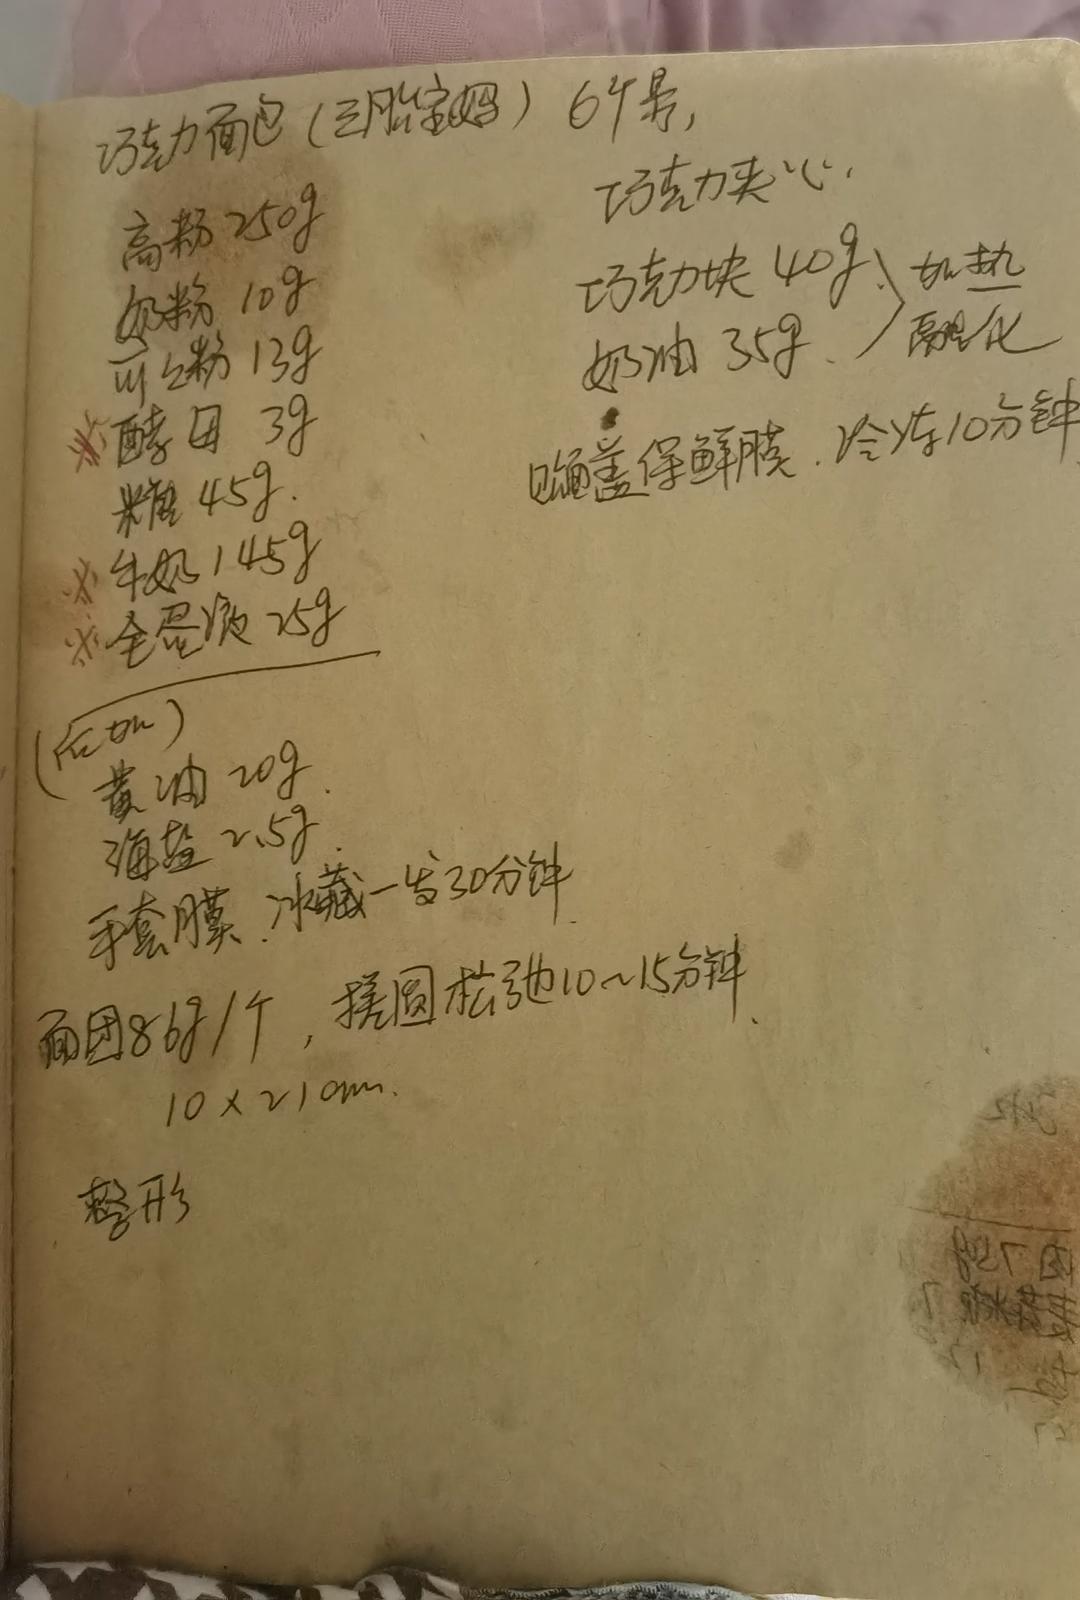 巧克力面包(三胎宝妈) 6个量,
高粉 250g
奶粉 10g
可可粉 13g
※ 酵母 3g
糖 45g.
※ 牛奶 145g
※ 全蛋液 25g
(后加)
黄油 20g.
海盐 2.5g.
手套膜.冰藏一发30分钟
面团86g/个,搓圆松弛10~15分钟.
10×21cm.
整形
巧克力夹心.
巧克力块 40g.
奶油 35g.
加热
融化
盖保鲜膜.冷冻10分钟